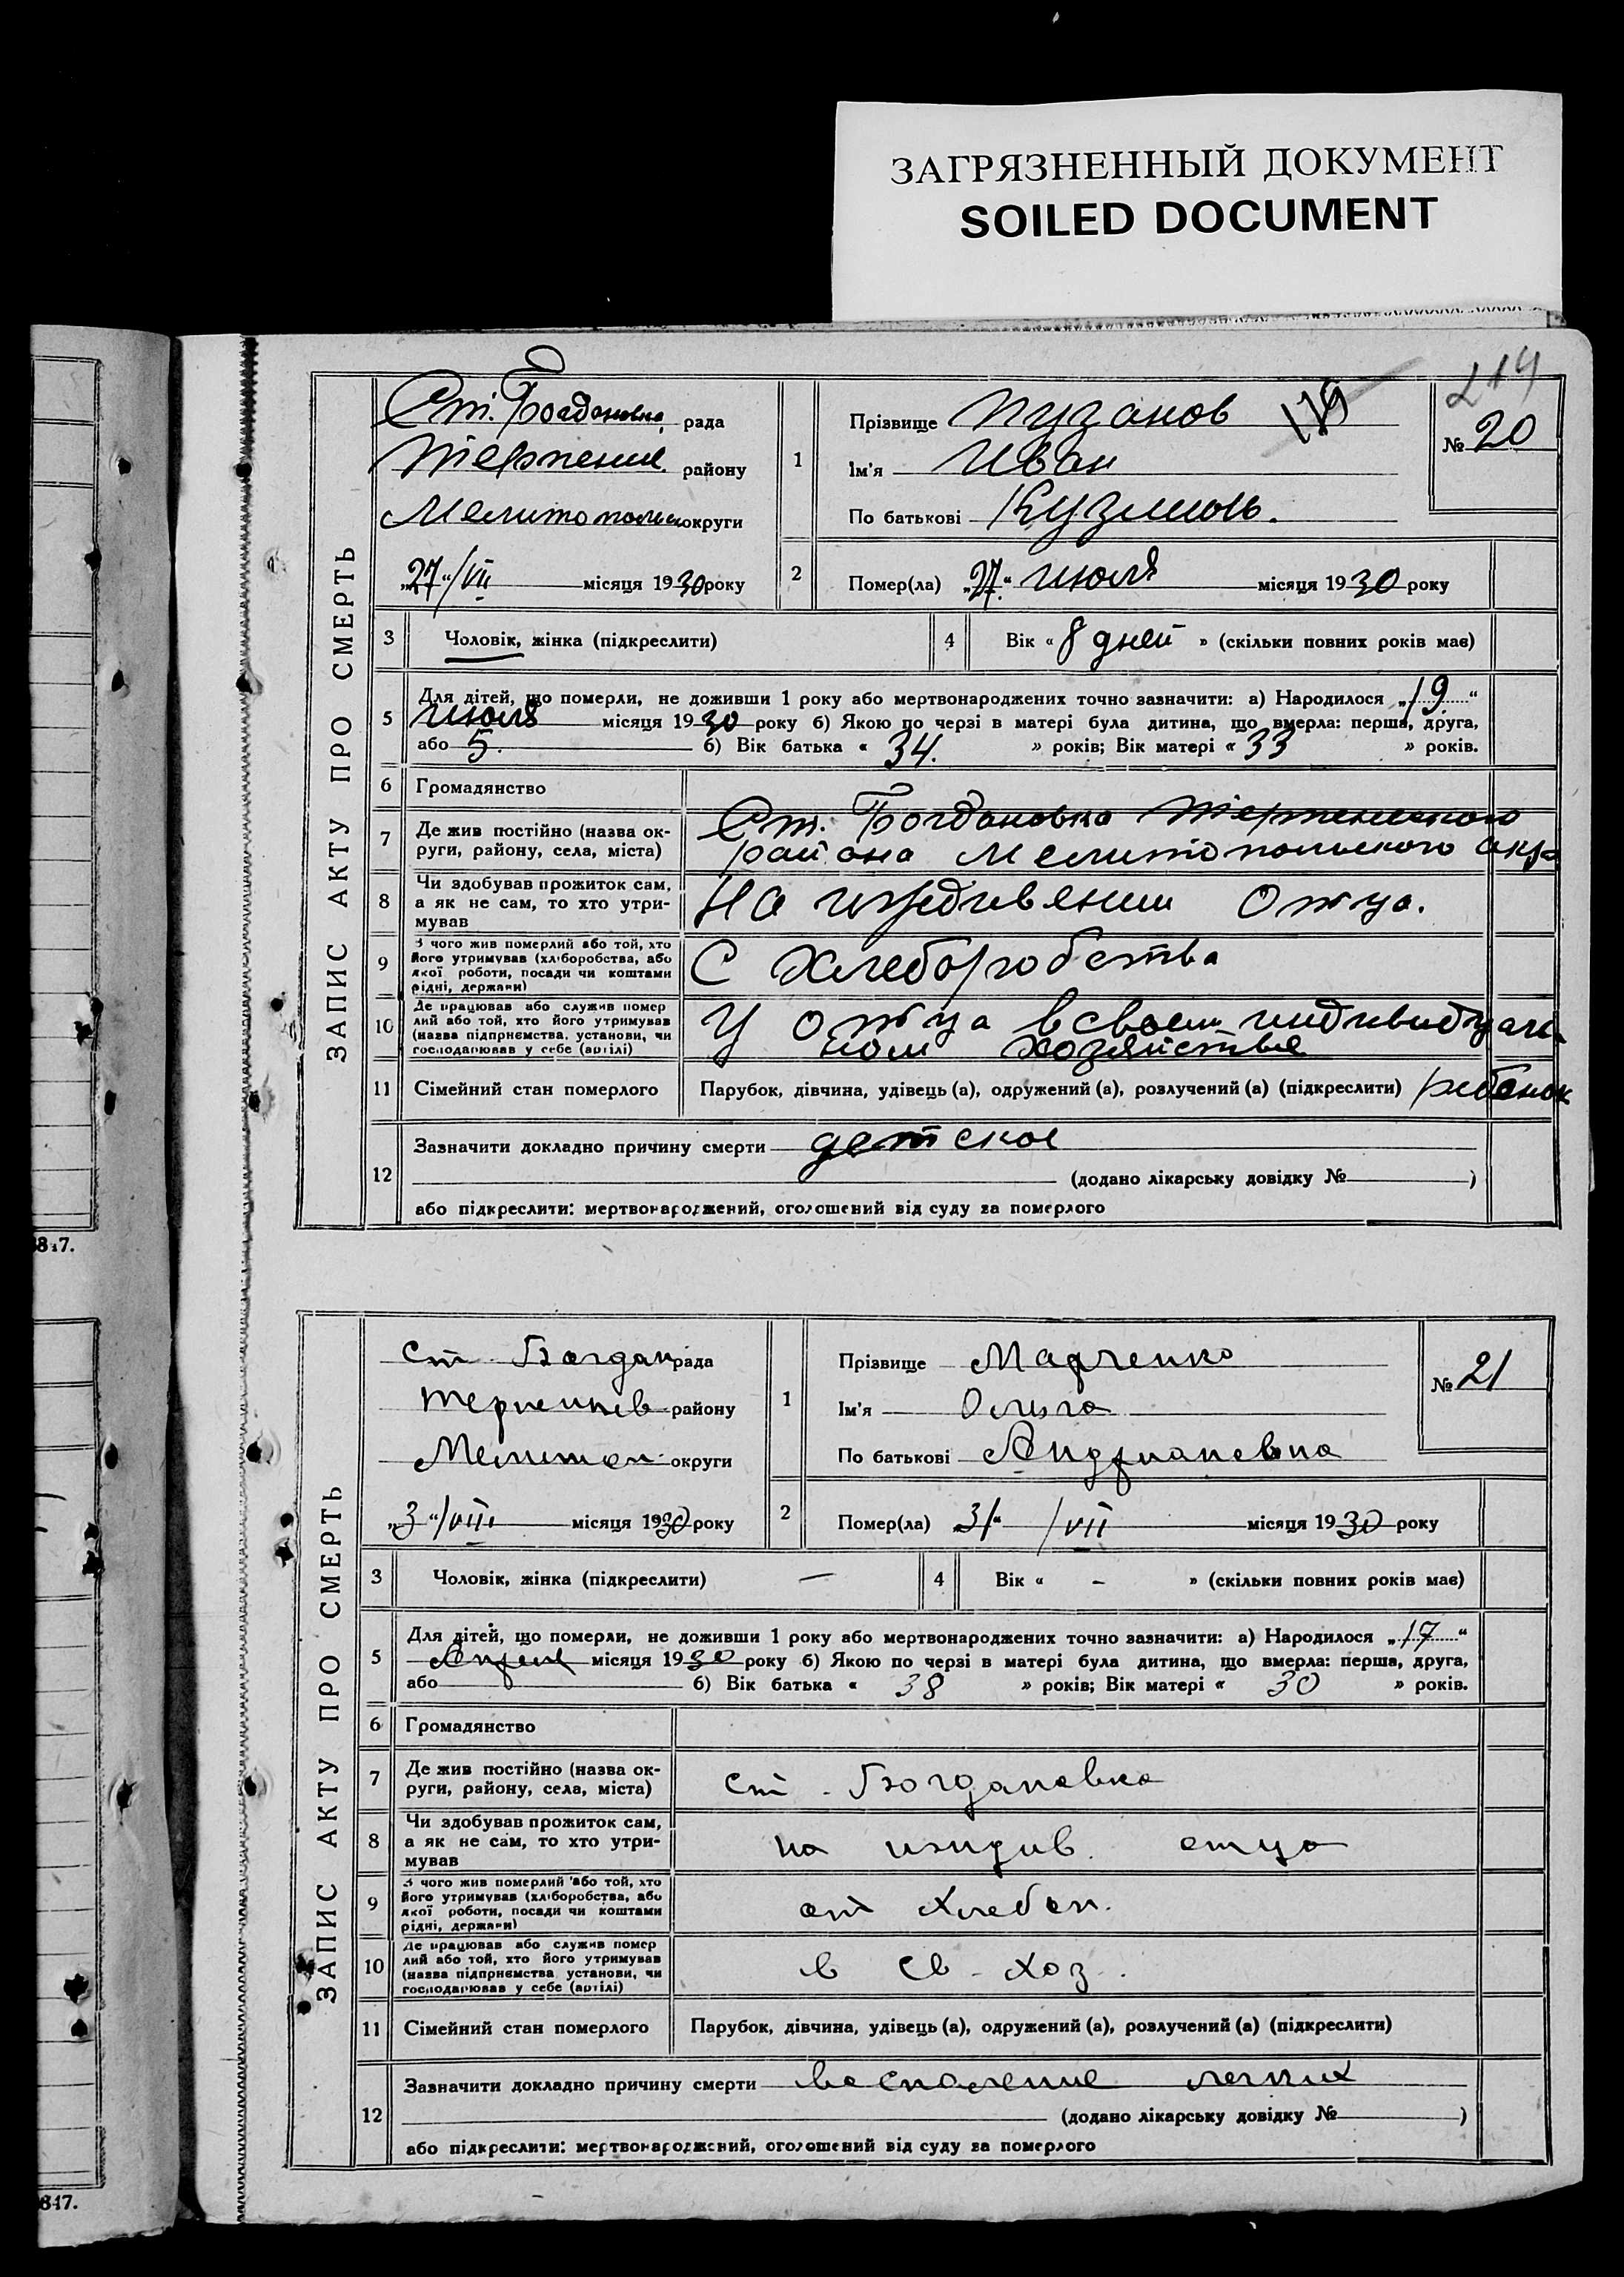 ЗАГРЯЗНЕННЫЙ ДОКУМЕНТ
SOILED DOCUMENT
214
ЗАПИС АКТУ ПРО СМЕРТЬ
Ст. Богдановка, рада
Терпение. району
Мелитопольск округи
„27“/VII місяця 1930 року
1
Прізвище Пузанов
119
Ім'я Иван
По батькові Кузьмовь.
№ 20
2
Помер(ла) „27“ Июля місяця 1930 року
3 Чоловік, жінка (підкреслити)
4 Вік « 8 дней » (скільки повних років має)
5 Для дітей, що померли, не доживши 1 року або мертвонароджених точно зазначити: а) Народилося „19“
Июля місяця 1930 року б) Якою по черзі в матері була дитина, що вмерла: перша, друга,
або 5. б) Вік батька « 34. » років; Вік матері « 33 » років.
6 Громадянство
7 Де жив постійно (назва округи, району, села, міста)
Ст. Богдановка Терпениевского
района Мелитопольского окр.
8 Чи здобував прожиток сам,
а як не сам, то хто утри-
мував
На иждивении Отца.
9 З чого жив померлий або той, хто
його утримував (хліборобства, або
якої роботи, посади чи коштами
рідні, держави)
С Хлеборобства
10 Де працював або служив помер
лий або той, хто його утримував
(назва підприємства, установи, чи
господарював у себе (артілі)
У отца в своем индивидуаль-
ном хозяйстве
11 Сімейний стан померлого
Парубок, дівчина, удівець (а), одружений (а), розлучений (а) (підкреслити) ребенок
12 Зазначити докладно причину смерти детское
(додано лікарську довідку № )
або підкреслити: мертвонароджений, оголошений від суду за померлого
847.
ЗАПИС АКТУ ПРО СМЕРТЬ
Ст. Богдан рада
Терпениев району
Мелитоп. округи
„3“/VIII місяця 1930 року
1
Прізвище Марченко
Ім'я Ольга
По батькові Андриановна
№ 21
2
Помер(ла) „31“ /VII місяця 1930 року
3 Чоловік, жінка (підкреслити) —
4 Вік « - » (скільки повних років має)
5 Для дітей, що померли, не доживши 1 року або мертвонароджених точно зазначити: а) Народилося „17“
Апреля місяця 1930 року б) Якою по черзі в матері була дитина, що вмерла: перша, друга,
або б) Вік батька « 38 » років; Вік матері « 30 » років.
6 Громадянство
7 Де жив постійно (назва ок-
руги, району, села, міста)
ст. Богдановка
8 Чи здобував прожиток сам,
а як не сам, то хто утри-
мував
на иждив. отца
9 З чого жив померлий або той, хто
його утримував (хліборобства, або
якої роботи, посади чи коштами
рідні, держави)
от Хлебоп.
10 Де працював або служив помер
лий або той, хто його утримував
(назва підприємства, установи, чи
господарював у себе (артілі)
в св - хоз.
11 Сімейний стан померлого
Парубок, дівчина, удівець (а), одружений (а), розлучений (а) (підкреслити)
12 Зазначити докладно причину смерти воспаление легких
(додано лікарську довідку № )
або підкреслити: мертвонароджений, оголошений від суду за померлого
847.